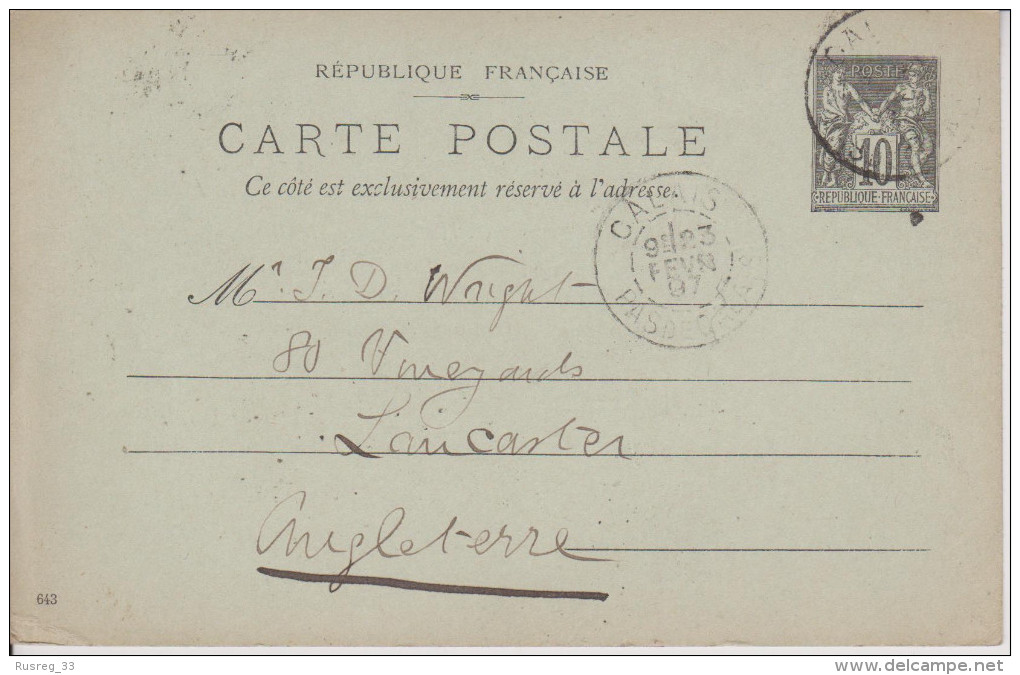 RÉPUBLIQUE FRANÇAISE
CARTE POSTALE
Ce côté est exclusivement réservé à l'adresse.
POSTE
10
RÉPUBLIQUE·FRANÇAISE
CAL
CALAIS
9E 23
FEVR
97
PAS DE CALAIS
Mr. J. D. Wright
80 Vineyards
Lancaster
Angleterre
643
Rusreg_33
www.delcampe.net